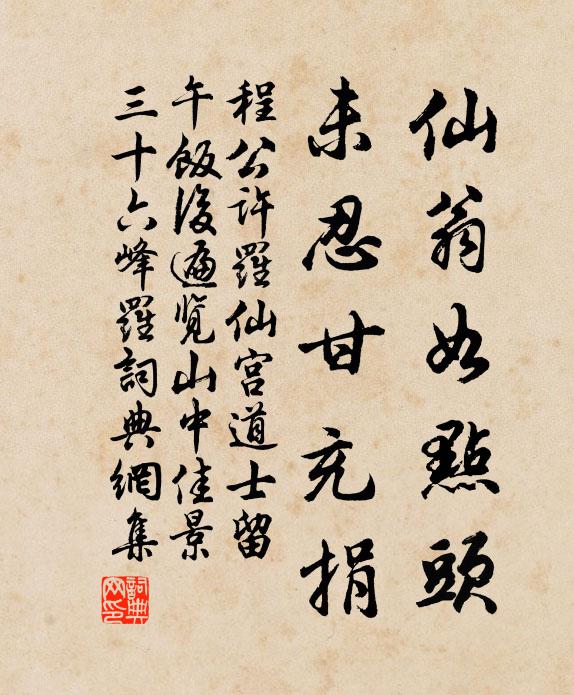 仙翁如點頭
未忍甘充捐
程公許羅仙宮道士留
午飯後遍覽山中佳景
三十六峰羅詞典網集
詞典網印